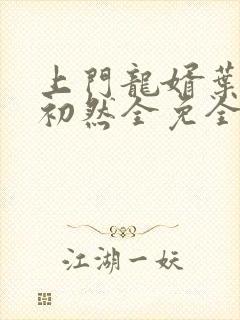 上門龍婿葉
初然全免全
江湖一妖